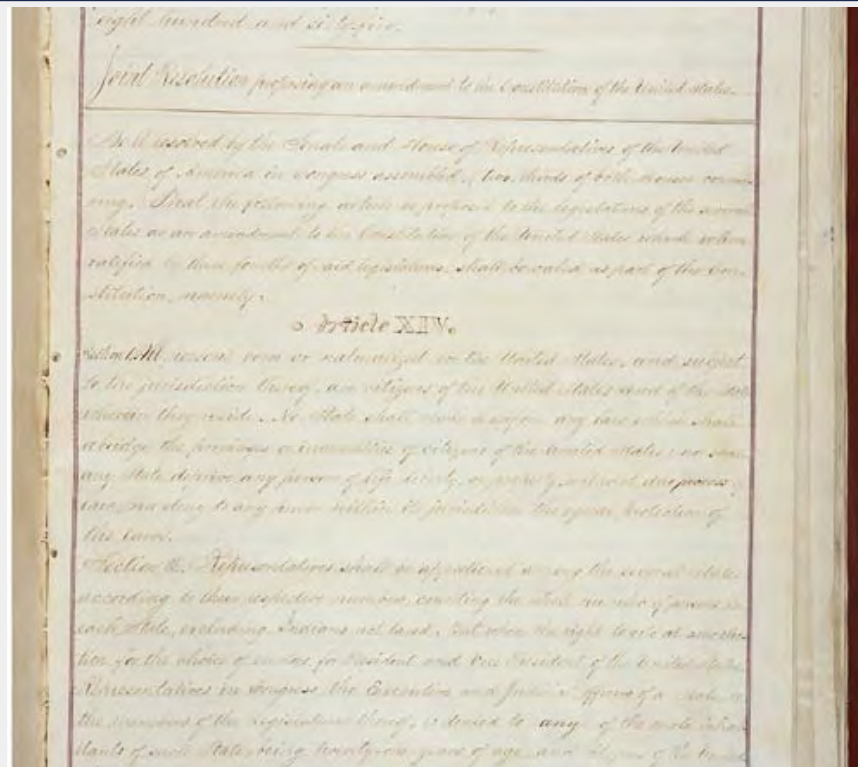 eight hundred and sixty-five.
Joint Resolution proposing an amendment to the Constitution of the United States.
Be it resolved by the Senate and House of Representatives of the United
States of America in Congress assembled, two thirds of both Houses concur-
ring, That the following article be proposed to the legislatures of the several
States as an amendment to the Constitution of the United States which when
ratified by three fourths of said legislatures, shall be valid as part of the Con-
stitution, namely.
Article XIV.
Section 1. All persons born or naturalized in the United States, and subject
to the jurisdiction thereof, are citizens of the United States and of the State
wherein they reside. No State shall make or enforce any law which shall
abridge the privileges or immunities of citizens of the United States; nor shall
any State deprive any person of life, liberty, or property, without due process
law, nor deny to any person within its jurisdiction the equal protection of
the laws.
Section 2. Representatives shall be apportioned among the several States
according to their respective numbers, counting the whole number of persons in
each State, excluding Indians not taxed. But when the right to vote at any elec-
tion for the choice of electors for President and Vice President of the United States,
Representatives in Congress, the Executive and Judicial officers of a State, or
the members of the legislature thereof, is denied to any of the male inhabi-
tants of such State, being twenty-one years of age, and citizens of the United